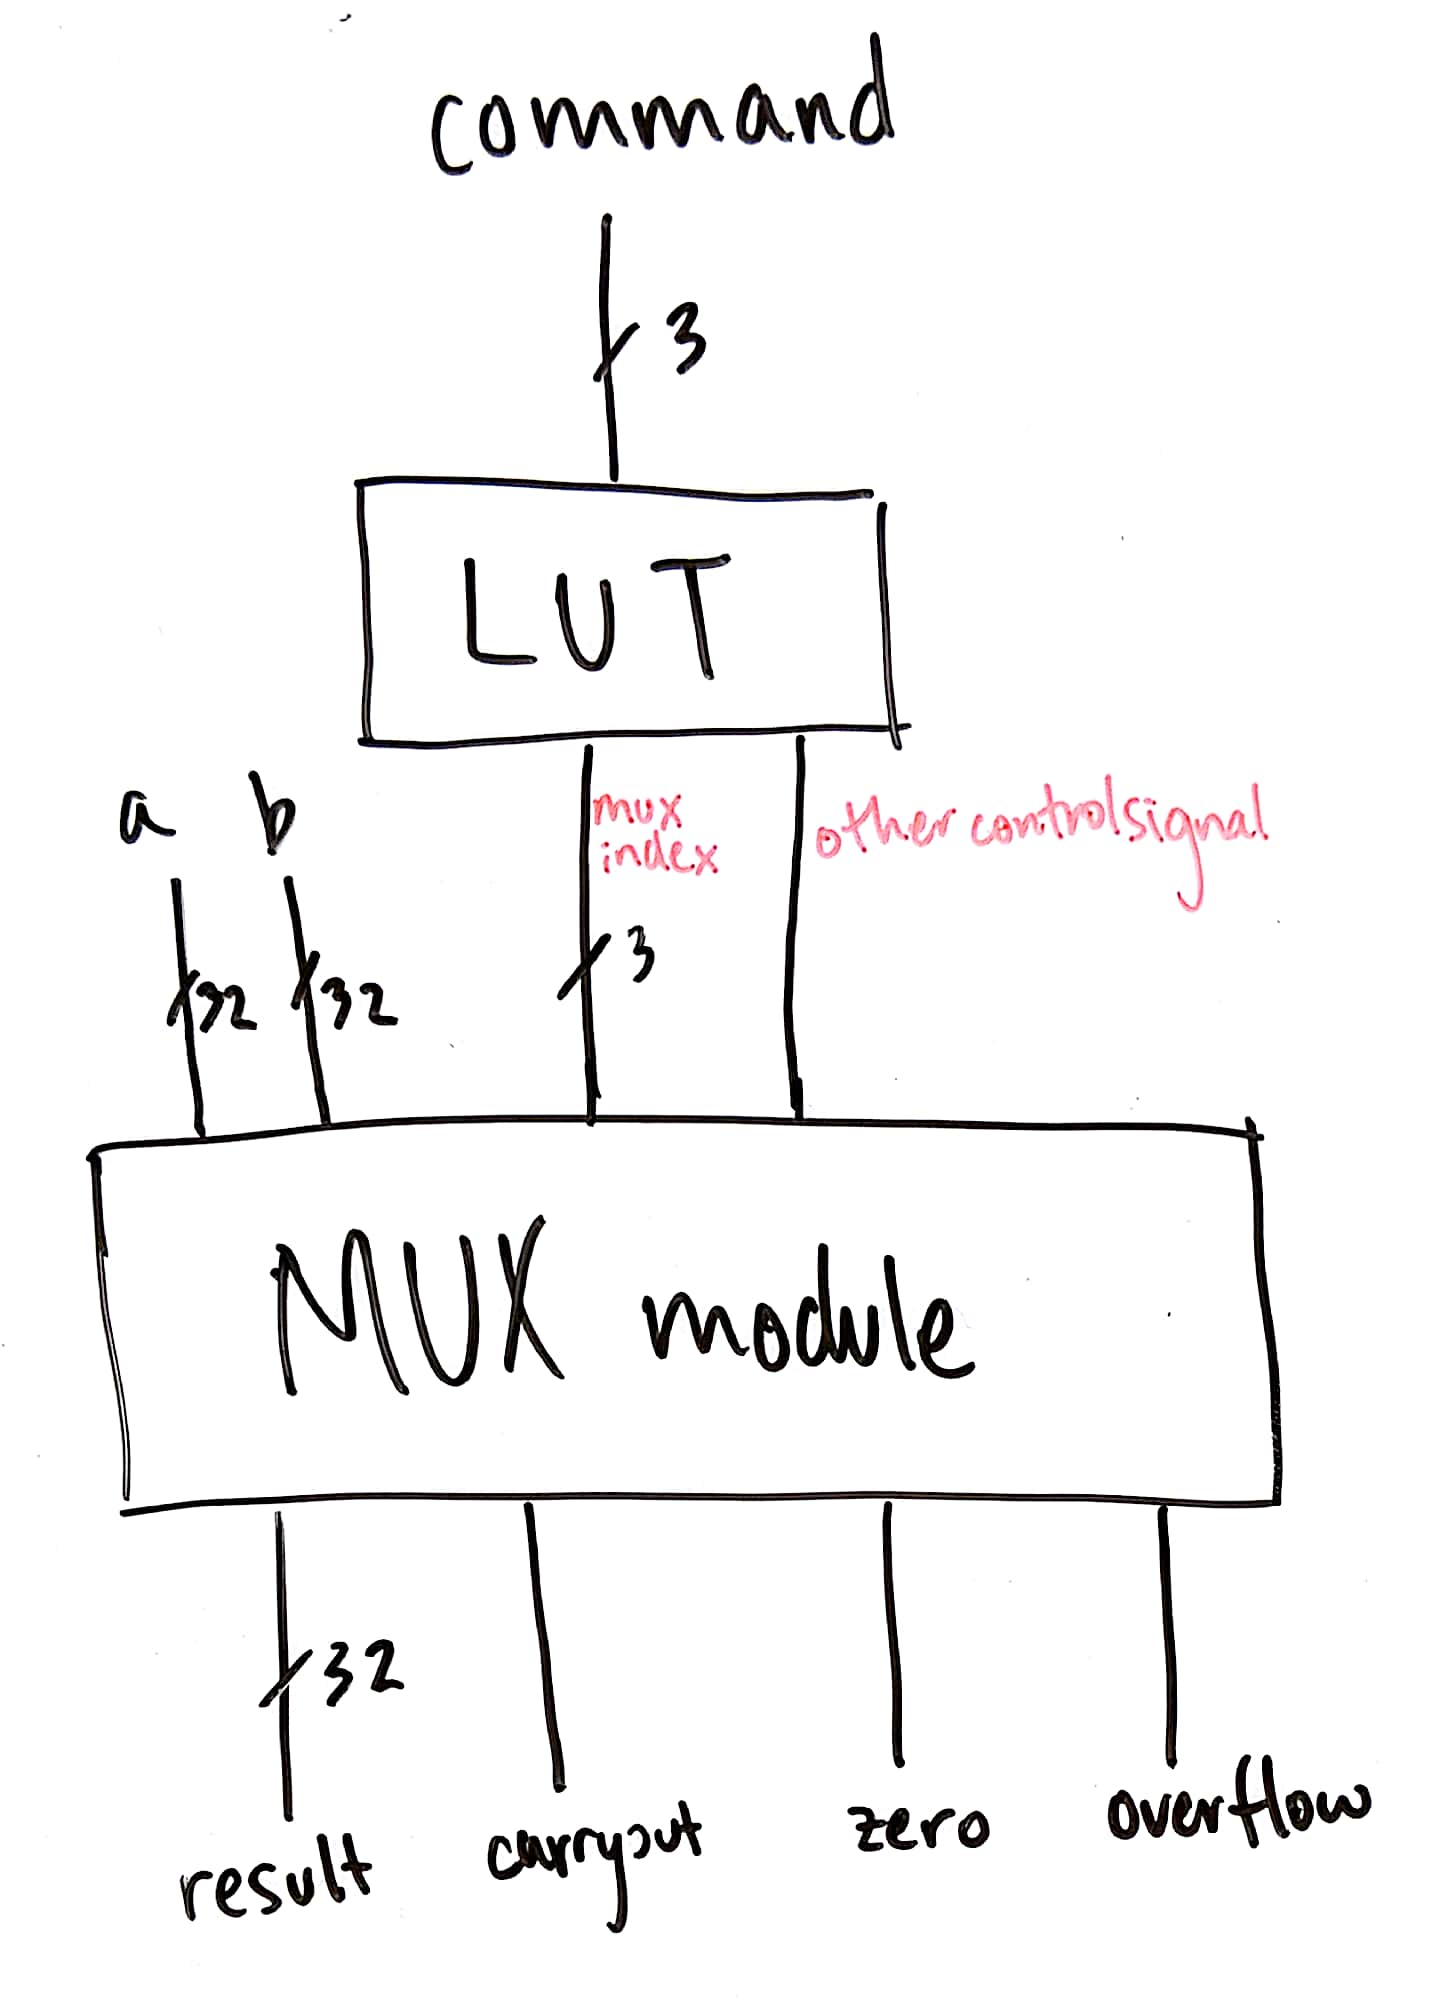 command
3
LUT
a b
mux
index
othercontrolsignal
32 32
3
MUX module
32
result carryout zero overflow